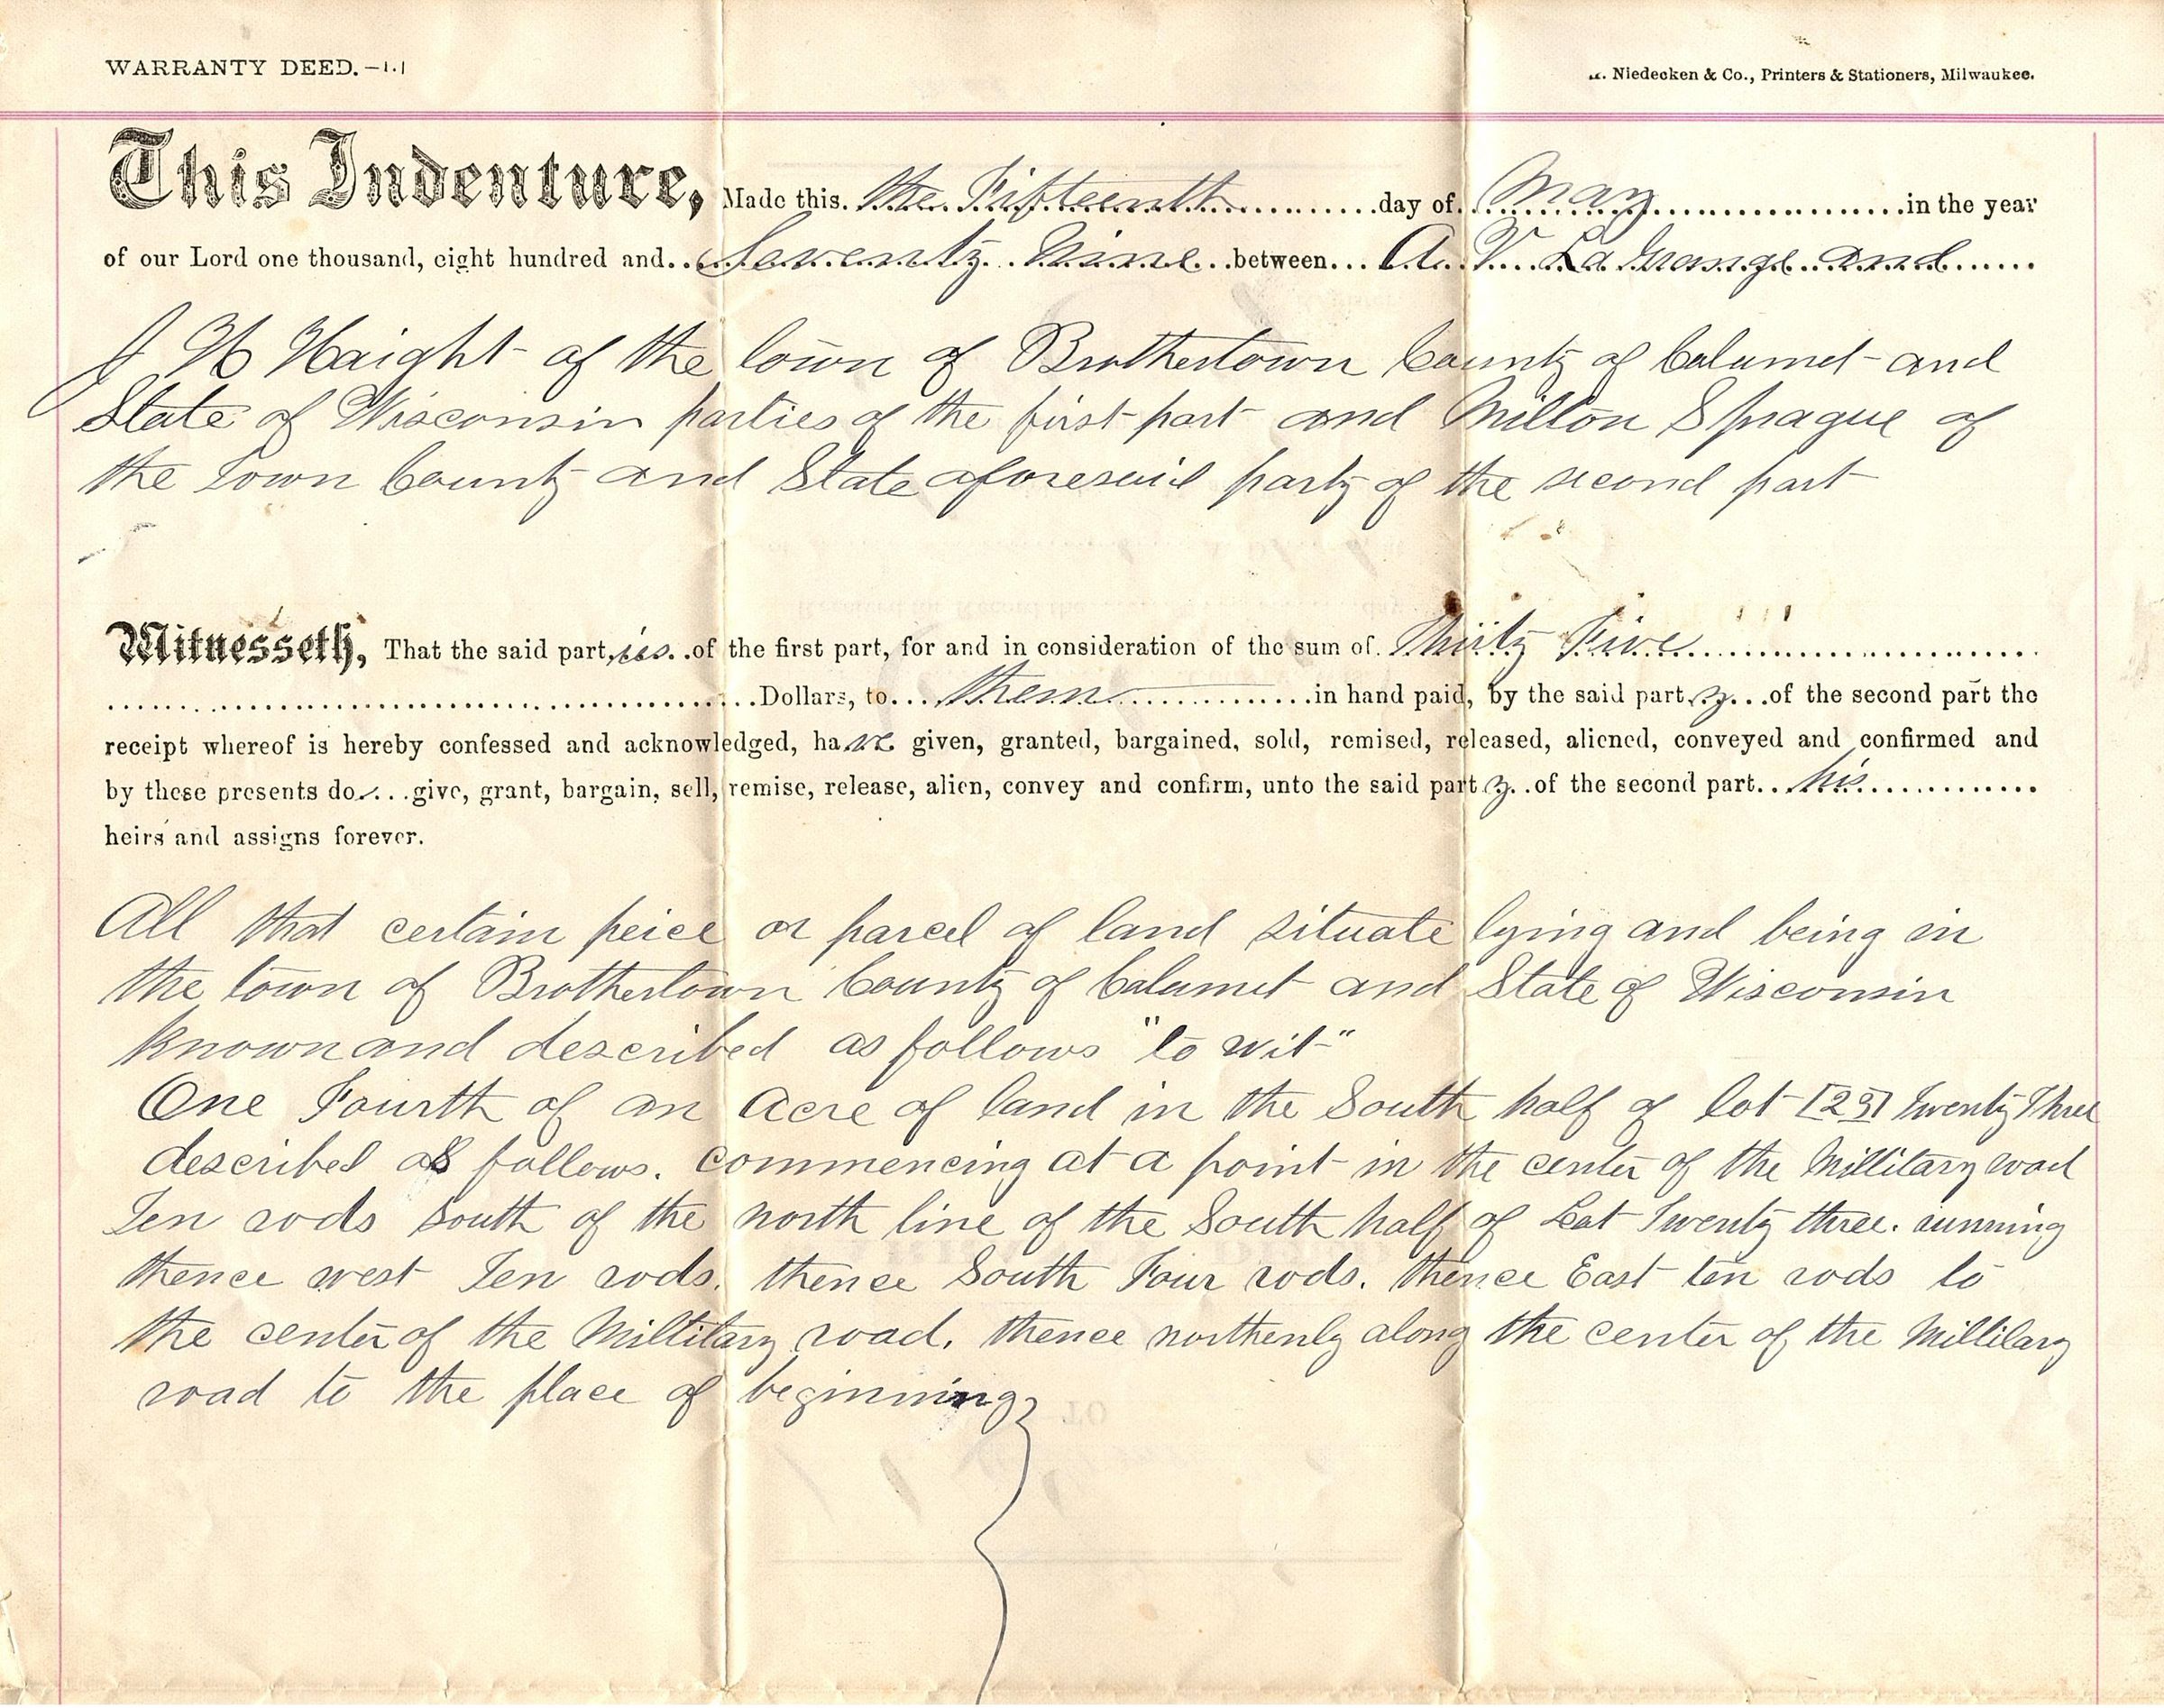 WARRANTY DEED.
Niedecken & Co., Printers & Stationers, Milwaukee.
This Indenture, Made this the Fifteenth day of May in the year
of our Lord one thousand, eight hundred and Seventy Nine between A. V. La Grange and
J H Haight of the town of Brothertown County of Calumet and
State of Wisconsin parties of the first part and Milton Sprague of
the Town County and State aforesaid party of the second part
Witnesseth, That the said parties of the first part, for and in consideration of the sum of Thirty Five
Dollars, to them in hand paid, by the said party of the second part the
receipt whereof is hereby confessed and acknowledged, have given, granted, bargained, sold, remised, released, aliened, conveyed and confirmed and
by these presents do give, grant, bargain, sell, remise, release, alien, convey and confirm, unto the said party of the second part his
heirs and assigns forever.
All that certain peice or parcel of land situate lying and being in
the town of Brothertown County of Calumet and State of Wisconsin
known and described as follows "to wit"
One Fourth of an Acre of land in the South half of lot [23] Twenty Three
described as follows. Commencing at a point in the center of the Millitary road
Ten rods South of the north line of the South half of Lot Twenty three. running
thence west Ten rods. thence South Four rods. thence East ten rods to
the center of the Millitary road. thence northenly along the center of the Millitary
road to the place of beginning